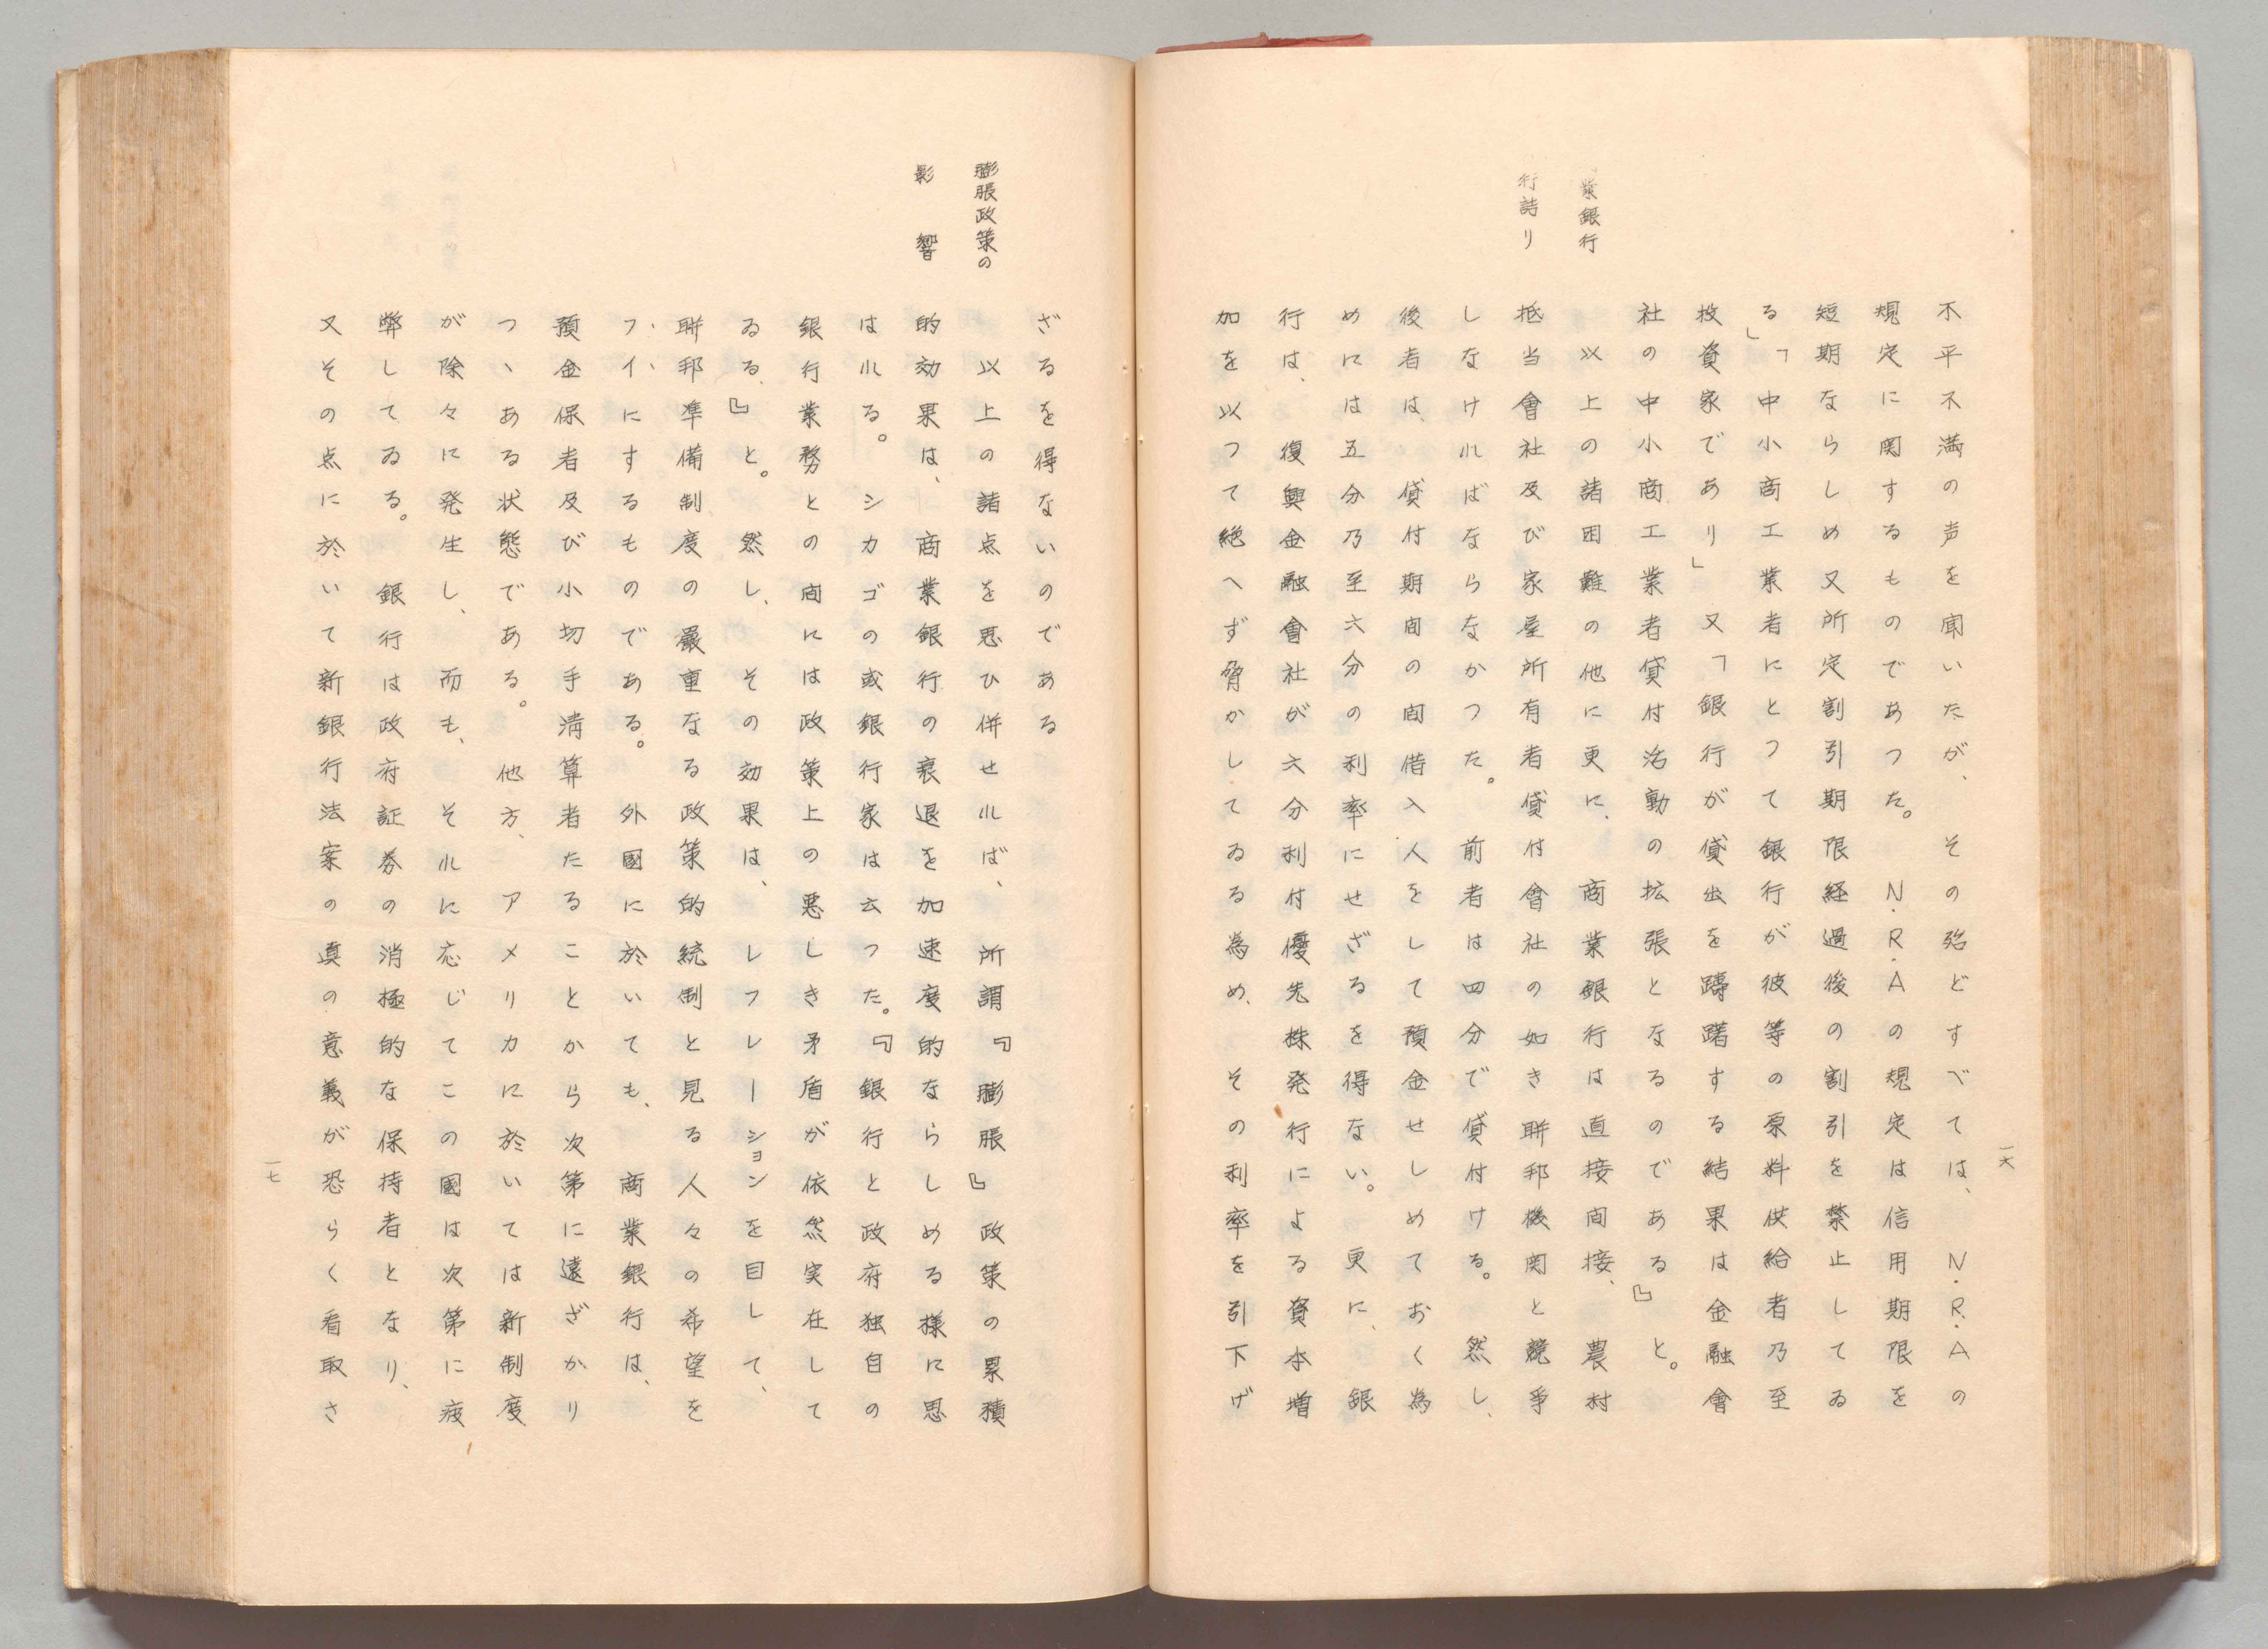 一六
不平不満の声を聞いたが、その殆どすべては、N.R.Aの
規定に関するものであつた。N.R.Aの規定は信用期限を
短期ならしめ又所定割引期限経過後の割引を禁止してゐ
る」「中小商工業者にとつて銀行が彼等の原料供給者乃至
投資家であり」又「銀行が貸出を躊躇する結果は金融會
社の中小商工業者貸付活動の拡張となるのである』と。
業銀行
行詰り
以上の諸困難の他に更に、商業銀行は直接間接、農村
抵当會社及び家屋所有者貸付會社の如き聯邦機関と競爭
しなければならなかつた。前者は四分で貸付ける。然し、
後者は、貸付期間の間借入人をして預金せしめておく為
めには五分乃至六分の利率にせざるを得ない。更に、銀
行は、復興金融會社が六分利付優先株発行による資本増
加を以つて絶へず脅かしてゐる為め、その利率を引下げ
ざるを得ないのである
膨脹政策の
影響
以上の諸点を思ひ併せれば、所謂『膨脹』政策の累積
的効果は、商業銀行の衰退を加速度的ならしめる様に思
はれる。シカゴの或銀行家は云つた。『銀行と政府独自の
銀行業務との間には政策上の悪しき矛盾が依然実在して
ゐる、』と。然し、その効果は、レフレーションを目して、
聯邦準備制度の嚴重なる政策的統制と見る人々の希望を
フイにするものである。外國に於いても、商業銀行は、
預金保者及び小切手清算者たることから次第に遠ざかり
つヽある状態である。他方、アメリカに於いては新制度
が除々に発生し、而も、それに応じてこの國は次第に疲
弊してゐる。銀行は政府証券の消極的な保持者となり、
又その点に於いて新銀行法案の真の意義が恐らく看取さ
一七